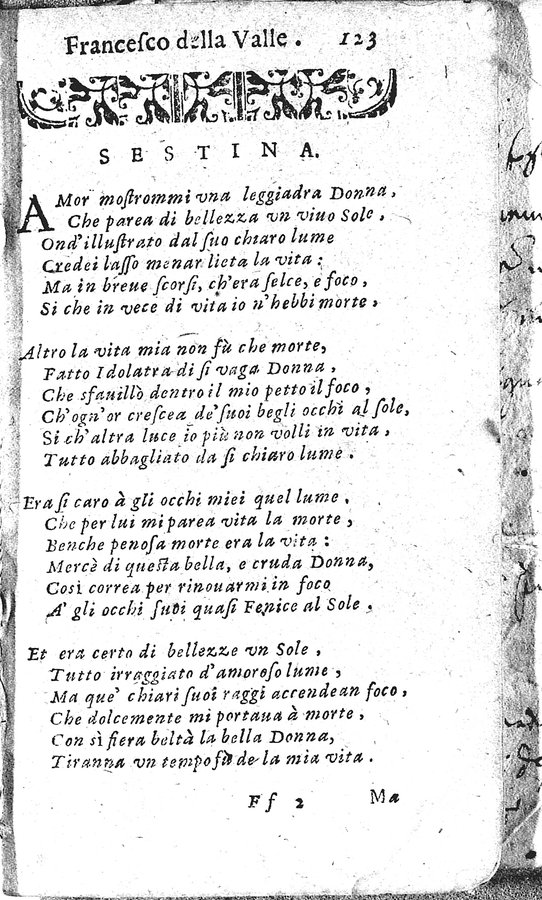 Francesco della Valle. 123
SESTINA.
AMor mostrommi vna leggiadra Donna,
Che parea di bellezza vn viuo Sole,
Ond'illustrato dal suo chiaro lume
Credei lasso menar lieta la vita:
Ma in breue scorsi, ch'era selce, e foco,
Si che in vece di vita io n'hebbi morte,
Altro la vita mia non fù che morte,
Fatto Idolatra di si vaga Donna,
Che sfauillò dentro il mio petto il foco,
Ch'ogn'or crescea de' suoi begli occhi al sole,
Si ch'altra luce io più non volli in vita,
Tutto abbagliato da si chiaro lume.
Era si caro à gli occhi miei quel lume,
Che per lui mi parea vita la morte,
Benche penosa morte era la vita:
Mercè di questa bella, e cruda Donna,
Così correa per rinouarmi in foco
A' gli occhi suoi quasi Fenice al Sole.
Et era certo di bellezze vn Sole,
Tutto irraggiato d'amoroso lume,
Ma que' chiari suoi raggi accendean foco,
Che dolcemente mi portaua à morte,
Con sì fiera beltà la bella Donna,
Tiranna vn tempo fù de la mia vita.
Ff 2 Ma